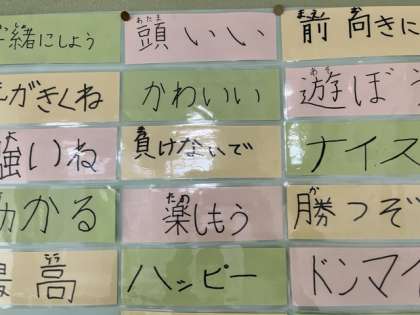 緒にしよう
頭いい
前向きに
がきくね
かわいい
遊ぼう
強いね
負けないで
ナイス
助かる
楽しもう
勝つぞ
最高
ハッピー
ドンマイ